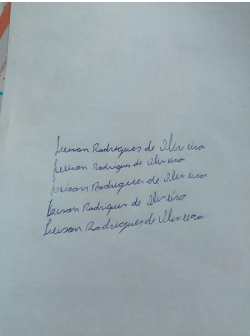 Juison Rodrigues de Oliveira
Juilson Rodrigues de Oliveira
Juison Rodrigues de Oliveira
Luison Rodrigues de Oliveira
Luison Rodrigues de Oliveira